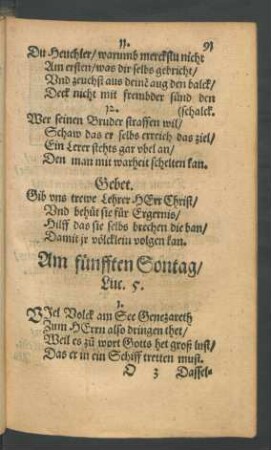 11. 91
Du Heuchler/ warumb merckstu nicht
Am ersten/ was dir selbs gebricht/
Vnd zeuchst aus deinē aug den balck/
Deck nicht mit frembder sünd den
12. (schalck.
Wer seinen Bruder straffen wil/
Schaw das er selbs erreich das ziel/
Ein Lerer stehts gar vbel an/
Den man mit warheit schelten kan.
Gebet.
Gib vns trewe Lehrer HErr Christ/
Vnd behüt sie für Ergernis/
Hilff das sie selbs brechen die ban/
Damit jr völcklein volgen kan.
Am fünfften Sontag/
Luc. 5.
1.
VIel Volck am See Genezareth
Zum HErrn also dringen thet/
Weil es zů wort Gotts het groß lust/
Das er in ein Schiff tretten must.
O 3 Dassel-